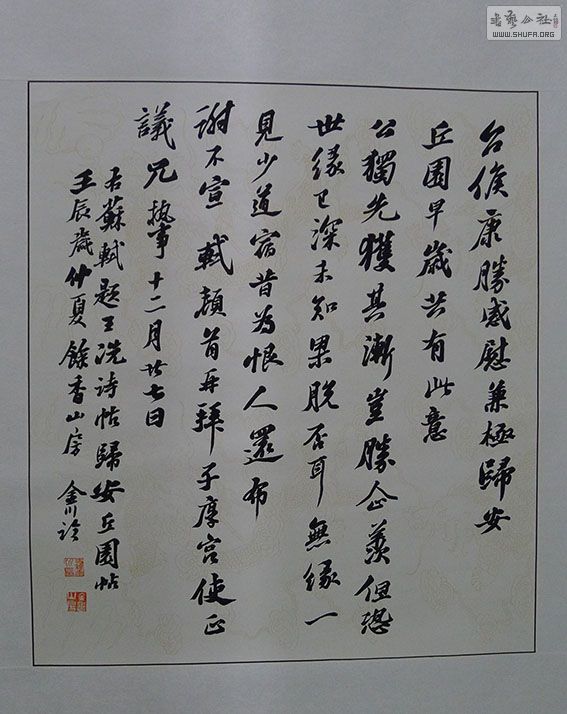 台候康勝感慰兼極歸安
丘園早歲共有此意
公獨先獲其漸豈勝企羨但恐
世緣已深未知果脫否耳無緣一
見少道宿昔為恨人還布
謝不宣 軾頓首再拜子厚宮使正
議兄執事十二月廿七日
右蘇軾題王詵诗帖歸安丘園帖
壬辰歲仲夏餘香山房
書藝公社
WWW.SHUFA.ORG